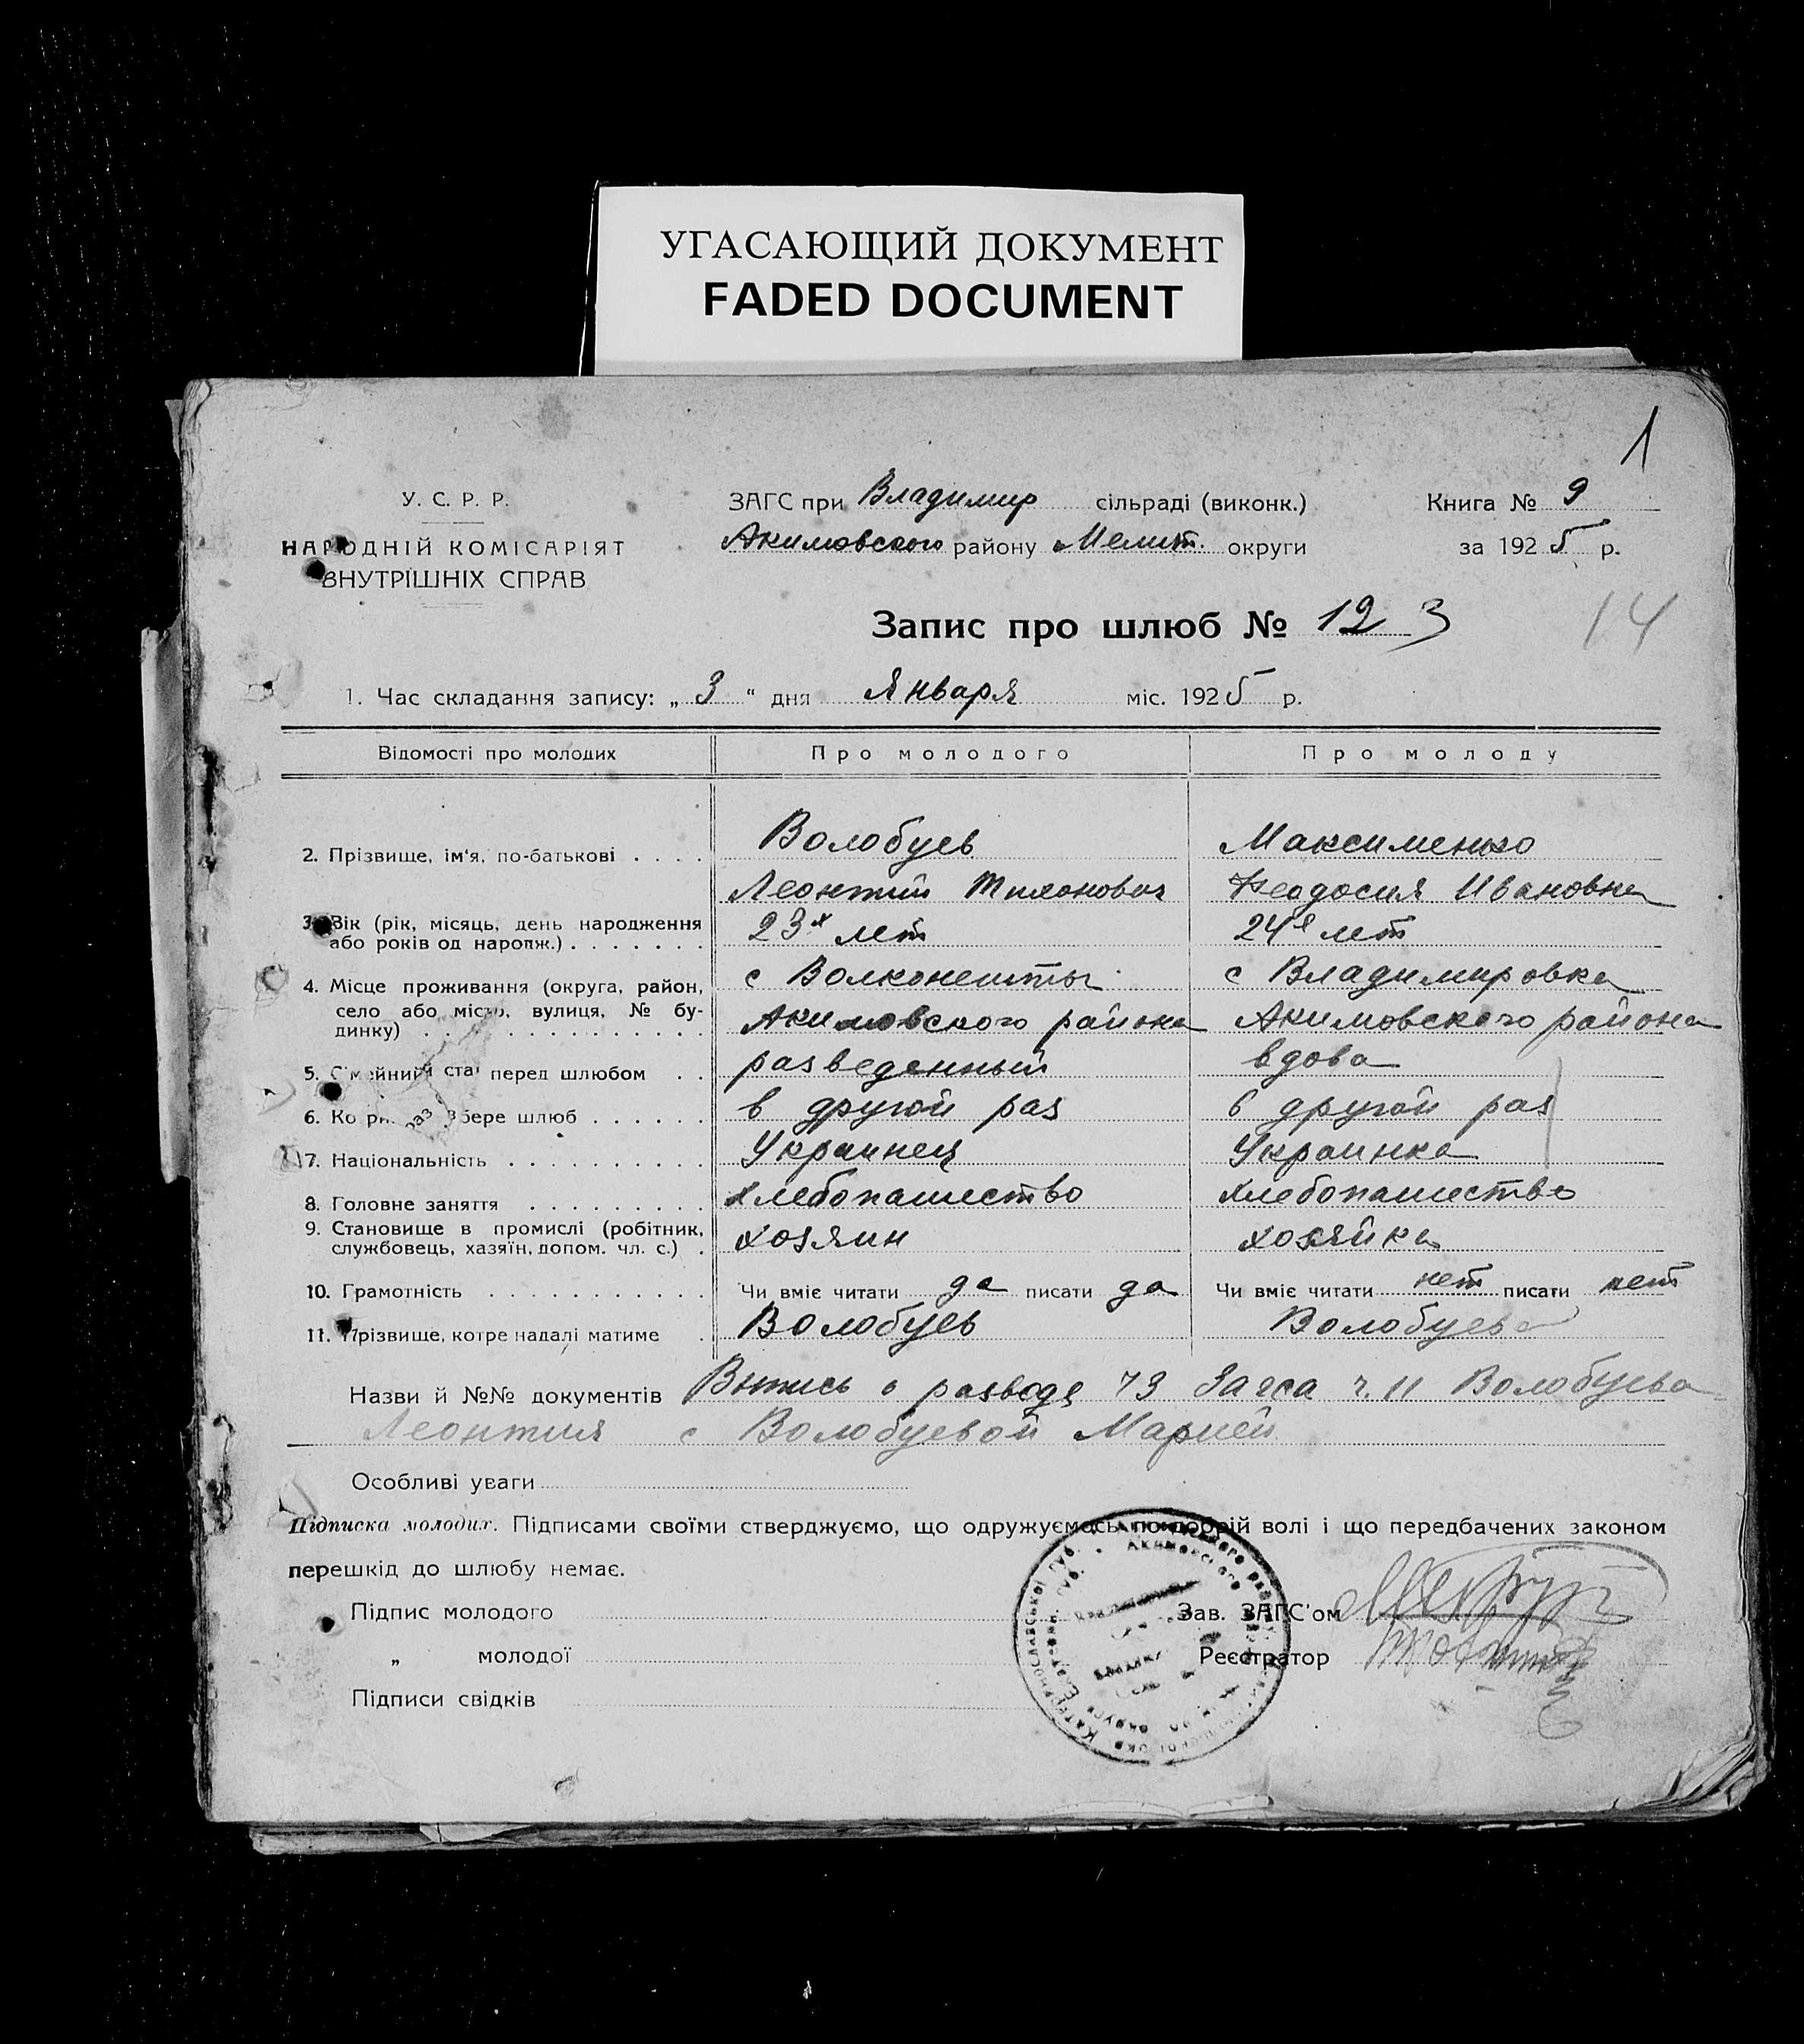 УГАСАЮЩИЙ ДОКУМЕНТ
FADED DOCUMENT
1
У. С. Р. Р.
НАРОДНІЙ КОМІСАРІЯТ
ВНУТРІШНІХ СПРАВ
ЗАГС при Владимир сільраді (виконк.)
Акимовского району Мелит. округи
Книга № 9
за 1925 р.
Запис про шлюб № 12 3
14
1. Час складання запису: „ 3 “ дня Января міс. 1925 р.
Відомості про молодих Про молодого Про молоду
2. Прізвище, ім'я, по-батькові . . . . Волобуев Максименко
Леонтий Тихонович Феодосия Ивановна
3. Вік (рік, місяць, день народження
або років од народж.) . . . . . . . 23х лет 24е лет
4. Місце проживання (округа, район, с Волконешты с Владимировка
село або місто, вулиця, № бу-
динку) . . . . . . . . . . . . . . Акимовского района Акимовского района
5. Сімейний стан перед шлюбом . . разведенный вдова
6. Котрий раз бере шлюб . . . . . . в другой раз в другой раз
7. Національність . . . . . . . . . . Украинец Украинка
8. Головне заняття . . . . . . . . . хлебопашество хлебопашество
9. Становище в промислі (робітник,
службовець, хазяїн, допом. чл. с.) . хозяин хозяйка
10. Грамотність . . . . . . . . . . . Чи вміє читати да писати да Чи вміє читати нет писати нет
11. Прізвище, котре надалі матиме . Волобуев Волобуева
Назви й №№ документів Выпись о разводе 73 Загса ч. 11 Волобуева
Леонтия с Волобуевой Марией
Особливі уваги
Підписка молодих. Підписами своїми стверджуємо, що одружуємось по добрій волі і що передбачених законом
перешкід до шлюбу немає.
Підпис молодого
„ молодої
Підписи свідків
Зав. ЗАГС'ом
Реєстратор